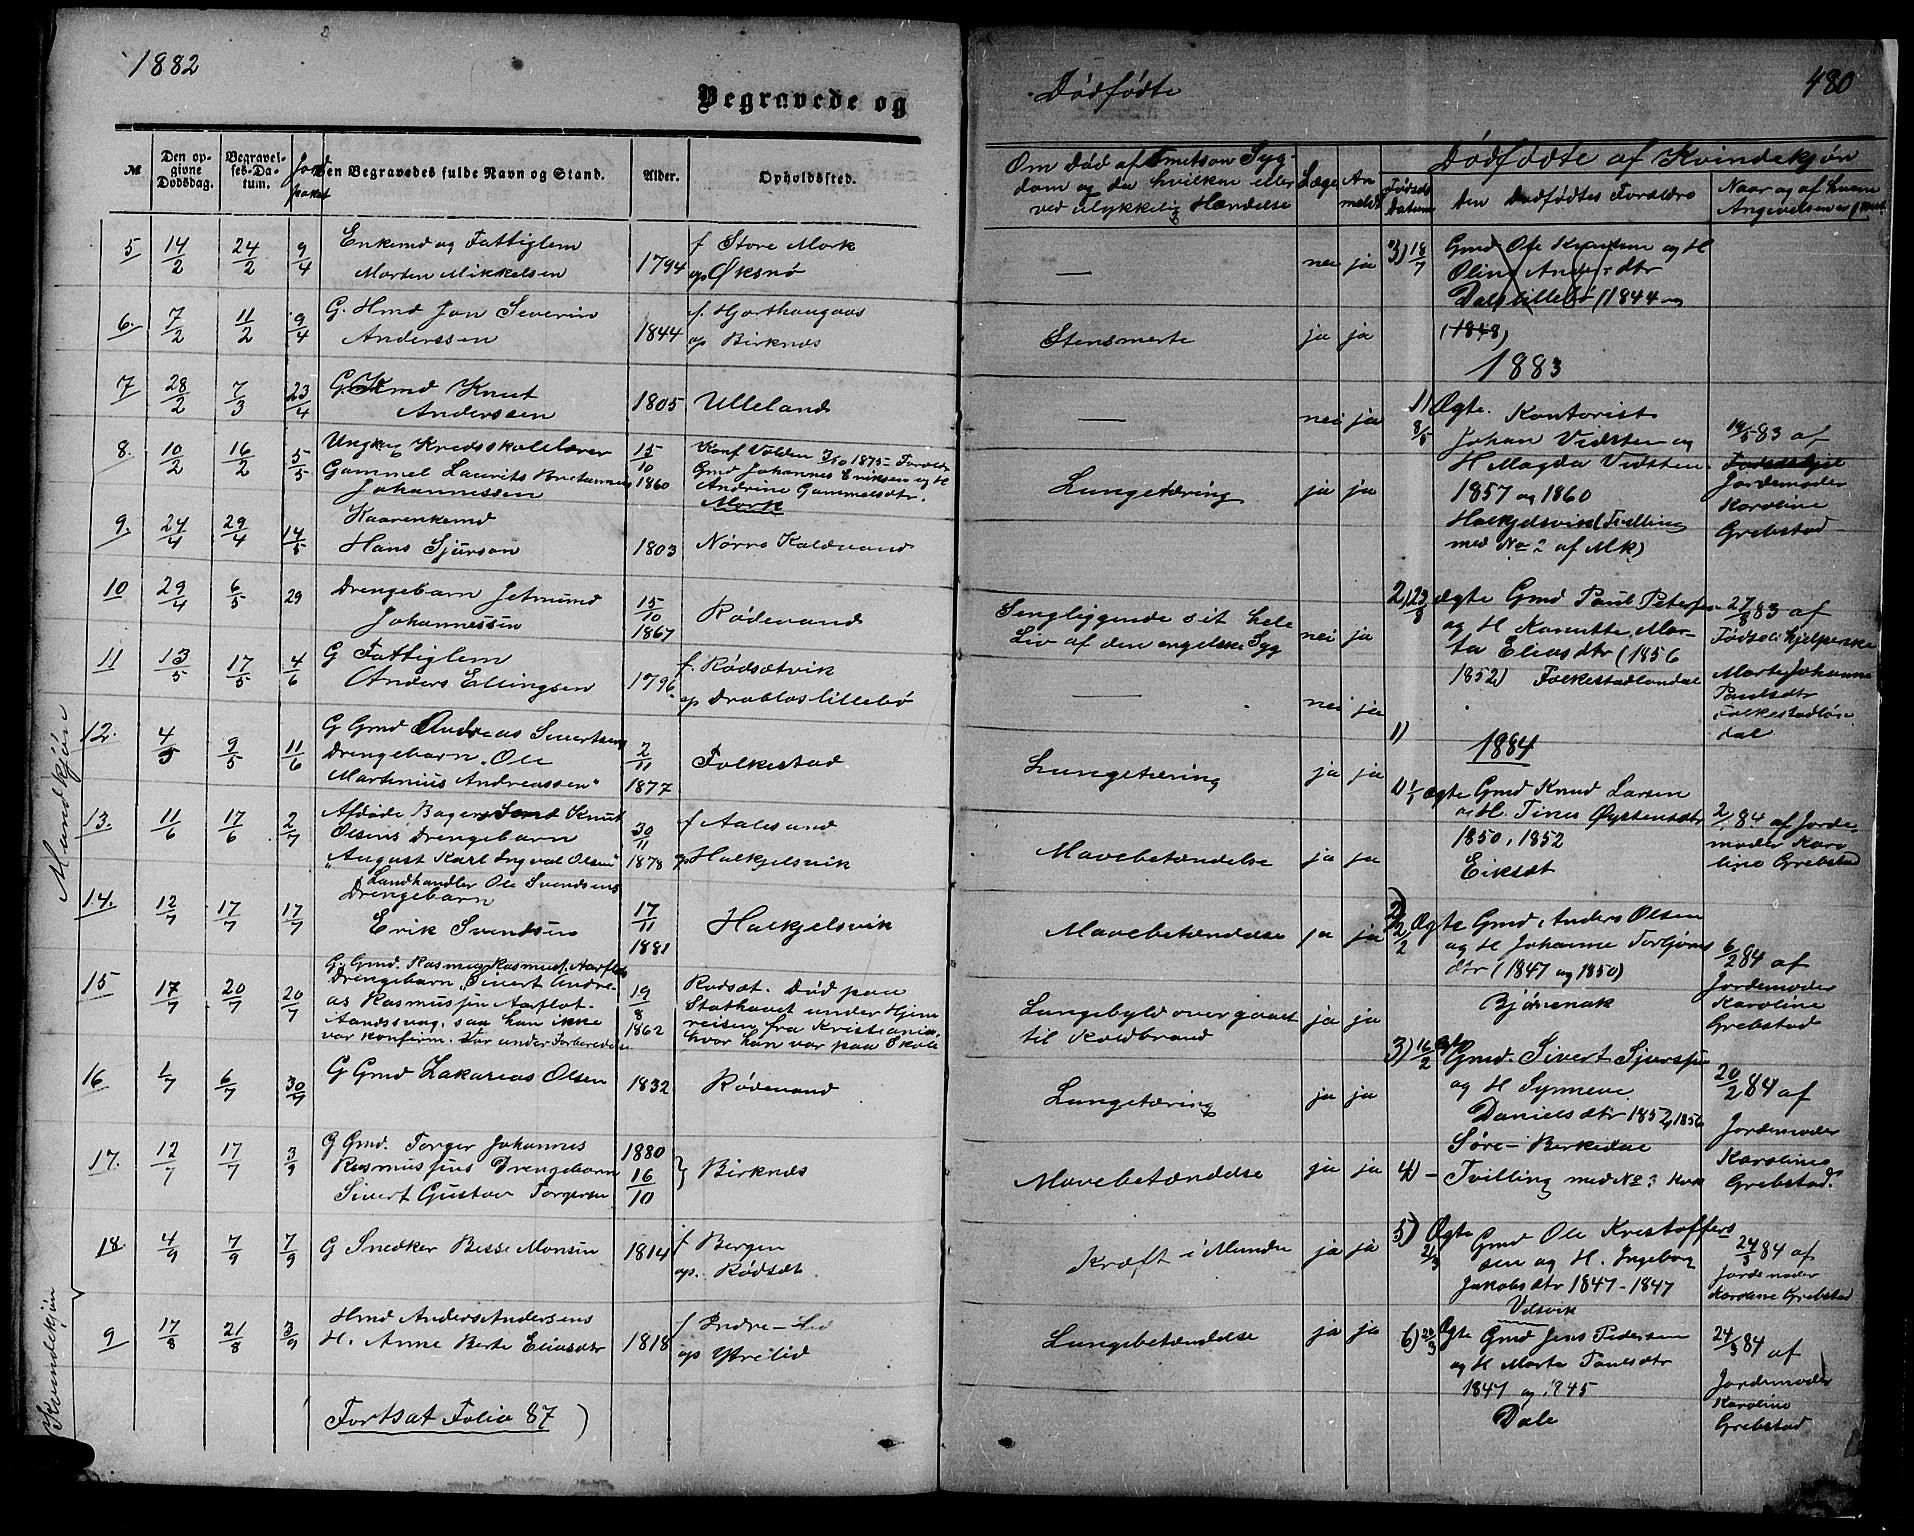 1882
Begravede og
№ | Den opgivne Dødsdag. | Begravelses-Datum. | Jordpaaket | Den Begravedes fulde Navn og Stand. | Alder. | Opholdssted.
Mandkjøn
5 | 14/2 | 24/2 | 9/4 | Enkemd og Fattiglem | 1794 | f Store Mork
Morten Mikkelsen | op Øksnø
6. | 7/2 | 11/2 | 9/4 | G. Hmd Jon Severin | 1844 | f. Hjorthaugaas
Anderssen | op Birknæs
7 | 28/2 | 7/3 | 23/4 | G. Kmd Knut | 1805 | Ulleland
Anderssen
8. | 10/2 | 16/2 | 5/5 | Ungk. Kredsskolelærer | 15/10 1860 | Konf Volden 3/10 1875 - Foreldr
Gammel Laurits Bretannus | Gmd Johannes Eriksen og H
Johannessen | Andrine Gammelsdtr.
Mork
9. | 24/4 | 29/4 | 14/5 | Kaarenkemd | 1803 | Nørre Koldvand
Hans Sjurson
10 | 29/4 | 6/5 | 29 | Drengebarn Jetmund | 15/10 1867 | Rødevand
Johannessen
11 | 13/5 | 17/5 | 4/6 | G Fattiglem | 1796 | f. Rødsætvik
Anders Ellingsen | op Drabløslillebø
12. | 4/5 | 9/5 | 11/6 | G Gmd Andreas Sivertsens | 2/11 1877 | Folkestad
Drengebarn „Ole
Martinius Andreassen"
13. | 11/6 | 17/6 | 2/7 | Afdøde Bager Knut | 30/11 1878 | f Aalesund
Olsens Drengebarn
„August Karl Ingval Olsen" | op Halkjelsvik
14. | 12/7 | 17/7 | 17/7 | Landhandler Ole Svendsens | 17/11 1881 | Halkjelsvik
Drengebarn
Erik Svendsen
15 | 17/7 | 20/7 | 20/7 | G. Gmd. Rasmus Rasmuss. Aarflots | 19/8 1862 | Rødsæt. Død paa
Drengebarn „Sivert Andreas | Stathavet under Hjem
Rasmussen Aarflot - | reisen fra Kristiania,
Aandssvag, saa han ikke | hvor han var paa Skole
var konfirm. var under Forberedelse
16 | 1/7 | 6/7 | 30/7 | G Gmd Zakarias Olsen | 1832 | Rødevand
17. | 12/7 | 17/7 | 3/9 | G Gmd. Torger Johannes | 1880 16/10 | Birknæs
Rasmussens Drengebarn
Sivert Gustav Torgersen
18. | 4/9 | 7/9 | 7/9 | G Snedker Besse Monsen | 1814 | f Bergen
op. Rødsæt.
Kvindekjøn
9 | 17/8 | 21/8 | 3/9 | Hmd Anders Andersens | 1818 | f Indre-Lid
H. Anne Berte Eliasdtr | op Ytrelid
(Fortsat Folio 87)
Dødfødte
480
Om død af smitsom Syg-
dom og da hvilken eller
ved ulykkelig Hændelse | Læge | Anmeldt
Dødfødte af Kvindekjøn
Fødsels Datum | den Dødfødtes Forældre | Naar og af hvem
Angivelsen er
— | nei | ja
Stensmerte | ja | ja
— | nei | ja
Lungetæring | ja | ja
Sengliggende sit hele | nei | ja
Liv af den engelske Syg
— | nei | ja
Lungetæring | ja | ja
Mavebetændelse | ja | ja
Mavebetændelse | ja | ja
Lungebyld overgaaet | ja | ja
til Koldbrand
Lungetæring | ja | ja
Mavebetændelse | ja | ja
Kræft i Munden | ja | ja
Lungebetændelse | ja | ja
3) 18/7 Gmd Ole Knudsen og H
Oline Andersdtr
Dalslillebø (1844 og
(1848)
1883
1) 8/5 Ægte. Kontorist
Johan Vidsten og
H Magda Vidsten
1857 og 1860
Halkjelsvik (Tvilling
med No 2 af Mk)
14/5 83 af
Jordemoder
Karoline
Grebstad
2) 23/8 Ægte Gmd Paul Peters.
og H Kanutte Mar-
ta Eliasdtr (1856
1852) Folkestadlandal
27/8 83 af
Fødselshjelperske
Marte Johanne
Paulsdtr
Folkestadløn
dal
1)
1884
1) 1/1 Ægte Gmd Knud Larsen
og H. Tines Øystensdtr
1850, 1852
Eiksæt
2/1 84 af Jorde-
moder Karo
line Grebstad
2) 2/2 Ægte Gmd. Anders Olsen
og H Johanne Torbjørns
dtr (1847 og 1850)
Bjørnenak
6/2 84 af
Jordemoder
Karoline
Grebstad
3) 16/2 Ægte Gmd Sivert Sjurssen
og H Synneve
Danielsdtr 1852, 1856
Søre-Birkedal
20/2 84 af
Jordemoder
Karoline
Grebstad.
4) - Tvilling med No 3 Kvk
5) 21/3 Ægte Gmd Ole Kristoffers
sen og H. Ingeborg
Jakobsdtr 1847-1847
Vidsvik
24/3 84 af
Jordemoder
Karoline Grebstad
6) 20/3 Ægte Gmd Jens Pedersen
og H Marta Paulsdtr
1847 og 1845
Dale
24/3 84 af
Jordemoder
Karoline
Grebstad